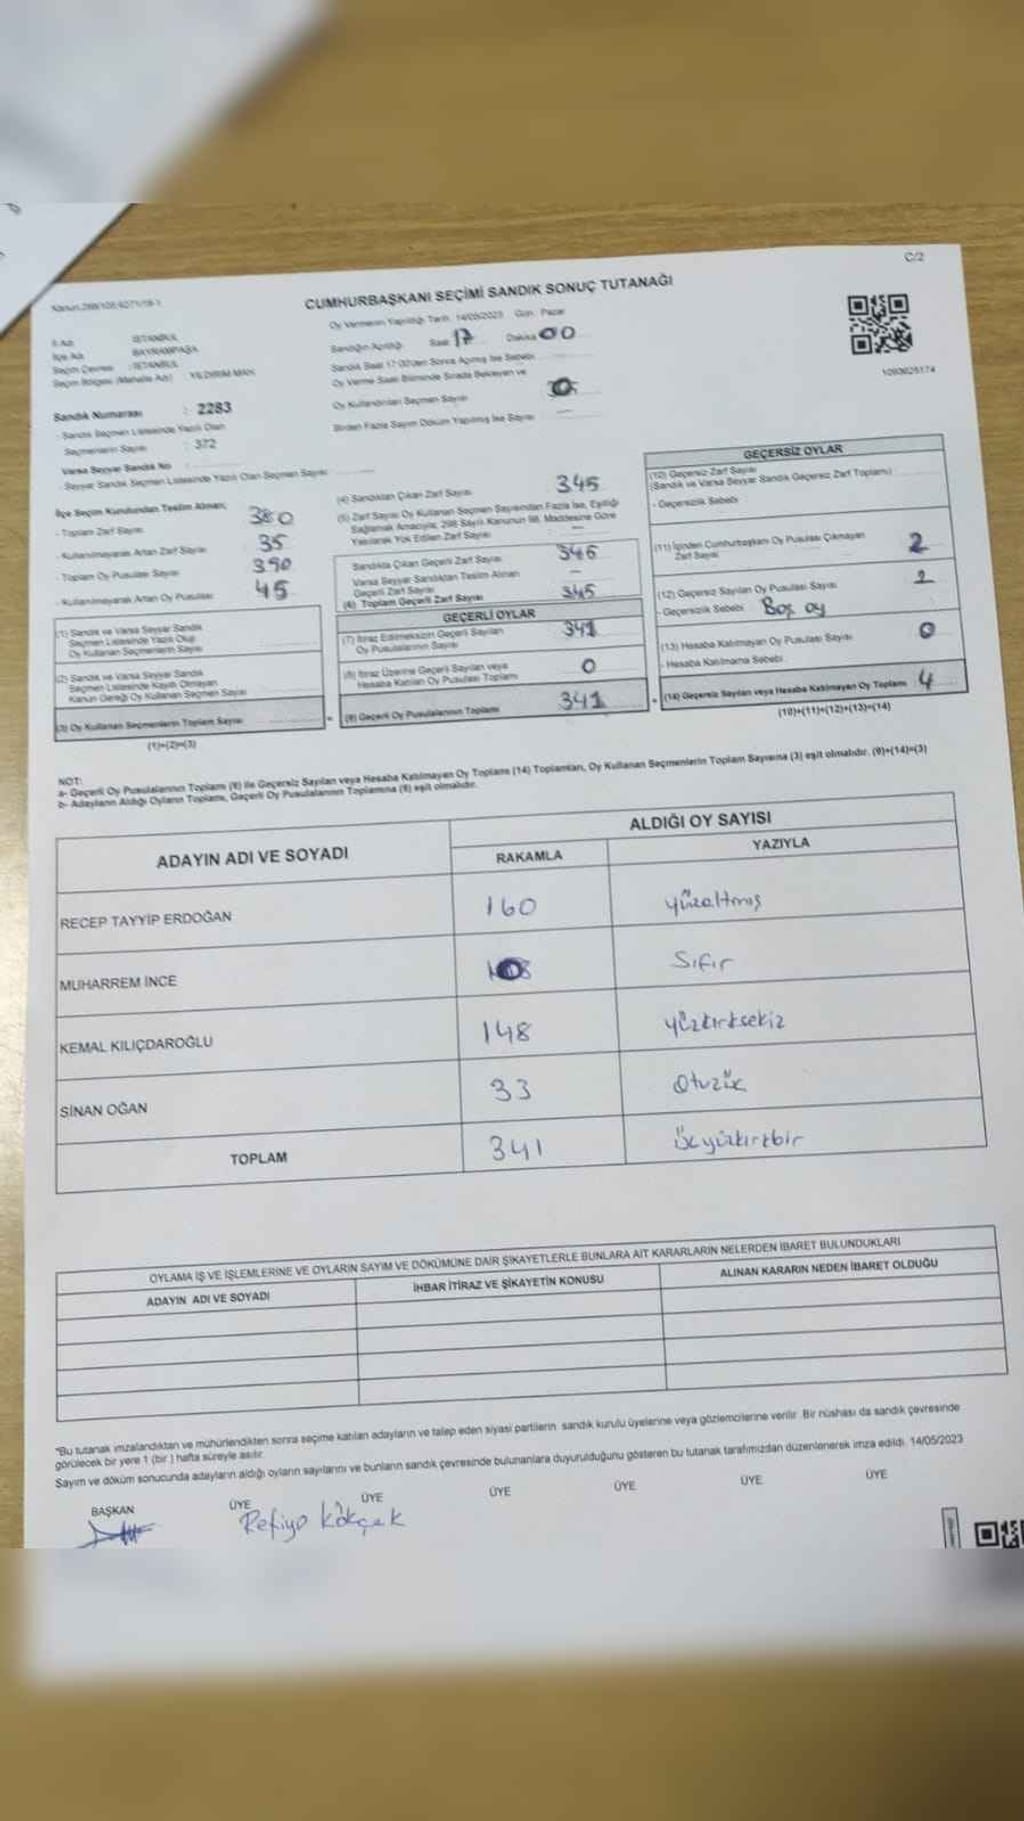 C/2
CUMHURBAŞKANI SEÇİMİ SANDIK SONUÇ TUTANAĞI
Oy Vermenin Yapıldığı Tarih 14/05/2023 Gün Pazar
İl Adı İSTANBUL
İlçe Adı BAYRAMPAŞA
Seçim Çevresi İSTANBUL
Seçim Bölgesi (Mahalle Adı) YILDIRIM MAH.
Sandığın Açıldığı Saat 17 Dakika 00
Sandık Saat 17:00'den Sonra Açılmış İse Sebebi
Oy Verme Saati Bitiminde Sırada Bekleyen ve
Oy Kullandırılan Seçmen Sayısı
Birden Fazla Sayım Döküm Yapılmış İse Sayısı
1093625174
Sandık Numarası : 2283
- Sandık Seçmen Listesinde Yazılı Olan
Seçmenlerin Sayısı : 372
Varsa Seyyar Sandık No
- Seyyar Sandık Seçmen Listesinde Yazılı Olan Seçmen Sayısı
İlçe Seçim Kurulundan Teslim Alınan;
- Toplam Zarf Sayısı 380
- Kullanılmayarak Artan Zarf Sayısı 35
- Toplam Oy Pusulası Sayısı 390
- Kullanılmayarak Artan Oy Pusulası 45
(1) Sandık ve Varsa Seyyar Sandık
Seçmen Listesinde Yazılı Olup
Oy Kullanan Seçmenlerin Sayısı
(2) Sandık ve Varsa Seyyar Sandık
Seçmen Listesinde Kayıtlı Olmayan
Kanun Gereği Oy Kullanan Seçmen Sayısı
(3) Oy Kullanan Seçmenlerin Toplam Sayısı
(1)+(2)=(3)
(4) Sandıktan Çıkan Zarf Sayısı 345
(5) Zarf Sayısı Oy Kullanan Seçmen Sayısından Fazla İse, Eşitliği
Sağlamak Amacıyla, 298 Sayılı Kanunun 98. Maddesine Göre
Yakılarak Yok Edilen Zarf Sayısı –
Sandıkta Çıkan Geçerli Zarf Sayısı
Varsa Seyyar Sandıktan Teslim Alınan
Geçerli Zarf Sayısı –
(6) Toplam Geçerli Zarf Sayısı 345
GEÇERLİ OYLAR
(7) İtiraz Edilmeksizin Geçerli Sayılan
Oy Pusulalarının Sayısı 341
(8) İtiraz Üzerine Geçerli Sayılan veya
Hesaba Katılan Oy Pusulası Toplamı 0
(9) Geçerli Oy Pusulalarının Toplamı 341
GEÇERSİZ OYLAR
(10) Geçersiz Zarf Sayısı
(Sandık ve Varsa Seyyar Sandık Geçersiz Zarf Toplamı)
- Geçersizlik Sebebi
(11) İçinden Cumhurbaşkanı Oy Pusulası Çıkmayan
Zarf Sayısı 2
(12) Geçersiz Sayılan Oy Pusulası Sayısı 2
- Geçersizlik Sebebi Boş oy
(13) Hesaba Katılmayan Oy Pusulası Sayısı 0
- Hesaba Katılmama Sebebi
(14) Geçersiz Sayılan veya Hesaba Katılmayan Oy Toplamı 4
(10)+(11)+(12)+(13)=(14)
NOT:
a- Geçerli Oy Pusulalarının Toplamı (9) ile Geçersiz Sayılan veya Hesaba Katılmayan Oy Toplamı (14) Toplamları, Oy Kullanan Seçmenlerin Toplam Sayısına (3) eşit olmalıdır. (9)+(14)=(3)
b- Adayların Aldığı Oyların Toplamı, Geçerli Oy Pusulalarının Toplamına (9) eşit olmalıdır.
ADAYIN ADI VE SOYADI
ALDIĞI OY SAYISI
RAKAMLA YAZIYLA
RECEP TAYYİP ERDOĞAN 160 yüzaltmış
MUHARREM İNCE Sıfır
KEMAL KILIÇDAROĞLU 148 yüzkırksekiz
SİNAN OĞAN 33 Otuzüç
TOPLAM 341 üçyüzkırkbir
OYLAMA İŞ VE İŞLEMLERİNE VE OYLARIN SAYIM VE DÖKÜMÜNE DAİR ŞİKAYETLERLE BUNLARA AİT KARARLARIN NELERDEN İBARET BULUNDUKLARI
ADAYIN ADI VE SOYADI İHBAR İTİRAZ VE ŞİKAYETİN KONUSU ALINAN KARARIN NEDEN İBARET OLDUĞU
"Bu tutanak imzalandıktan ve mühürlendikten sonra seçime katılan adayların ve talep eden siyasi partilerin sandık kurulu üyelerine veya gözlemcilerine verilir. Bir nüshası da sandık çevresinde
görülecek bir yere 1 (bir) hafta süreyle asılır.
Sayım ve döküm sonucunda adayların aldığı oyların sayılarını ve bunların sandık çevresinde bulunanlara duyurulduğunu gösteren bu tutanak tarafımızdan düzenlenerek imza edildi. 14/05/2023
BAŞKAN ÜYE ÜYE ÜYE ÜYE ÜYE ÜYE
Refiye Kökçek